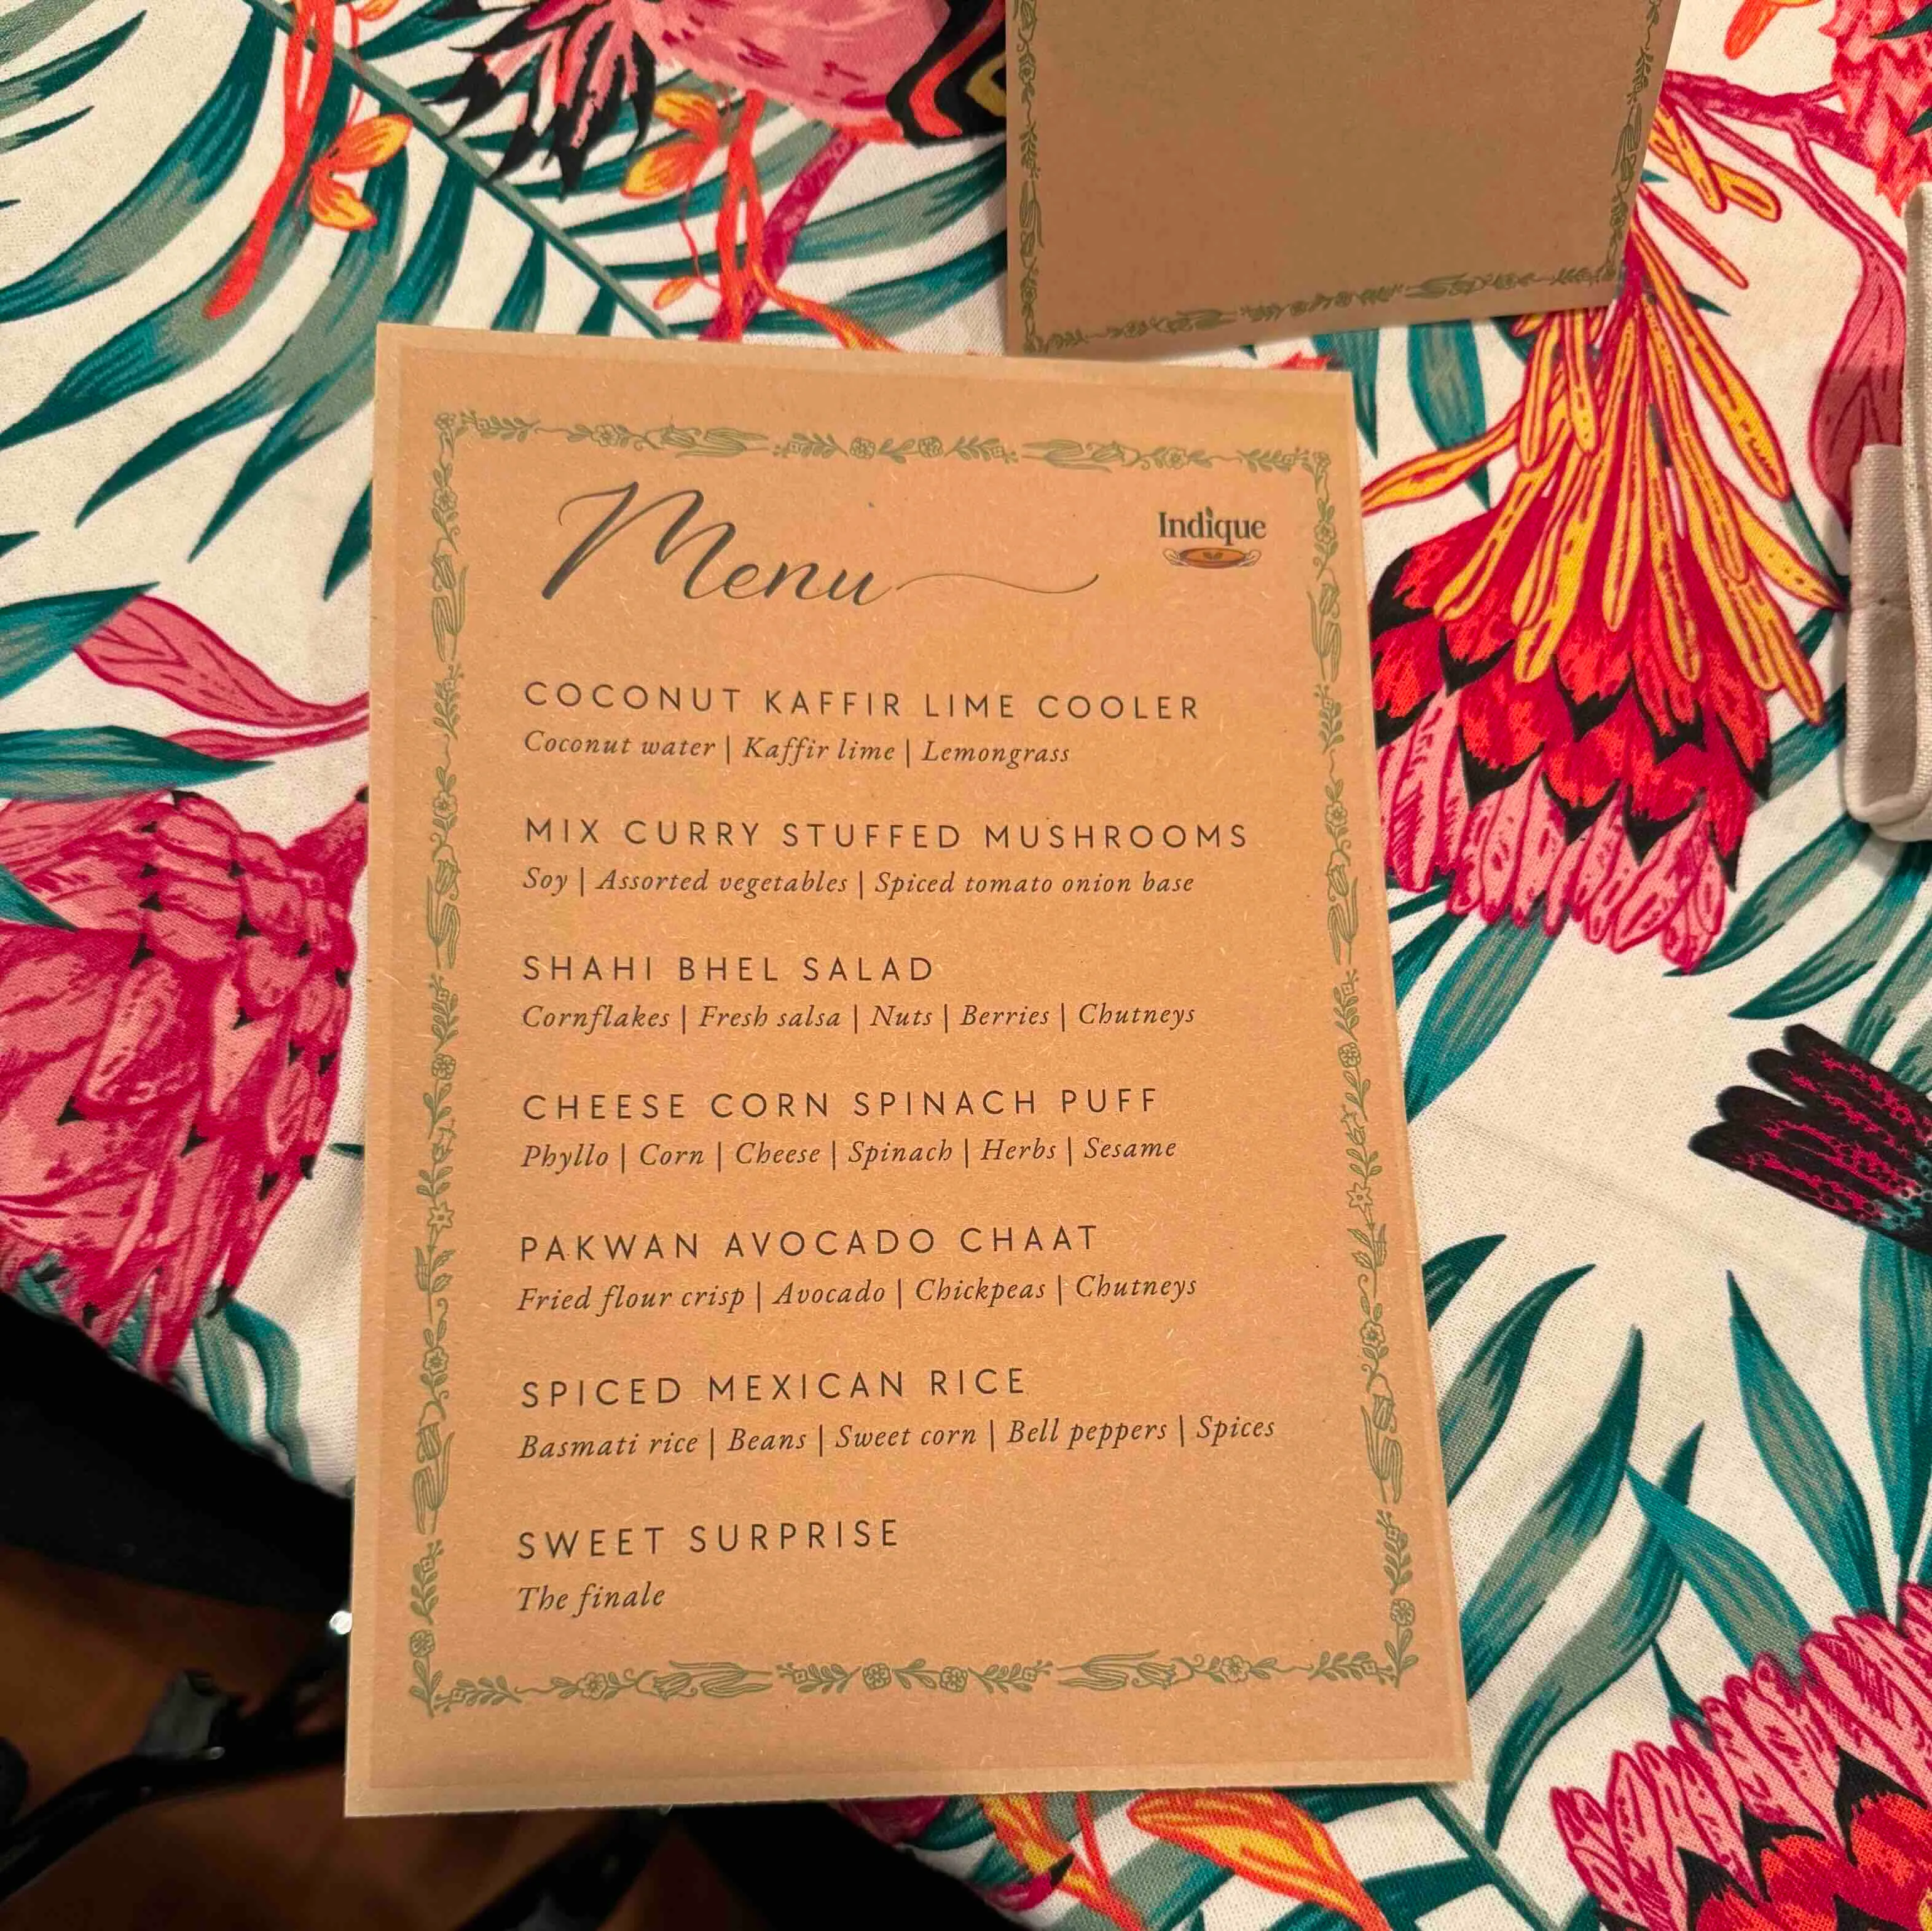 Menu
Indique
COCONUT KAFFIR LIME COOLER
Coconut water | Kaffir lime | Lemongrass
MIX CURRY STUFFED MUSHROOMS
Soy | Assorted vegetables | Spiced tomato onion base
SHAHI BHEL SALAD
Cornflakes | Fresh salsa | Nuts | Berries | Chutneys
CHEESE CORN SPINACH PUFF
Phyllo | Corn | Cheese | Spinach | Herbs | Sesame
PAKWAN AVOCADO CHAAT
Fried flour crisp | Avocado | Chickpeas | Chutneys
SPICED MEXICAN RICE
Basmati rice | Beans | Sweet corn | Bell peppers | Spices
SWEET SURPRISE
The finale